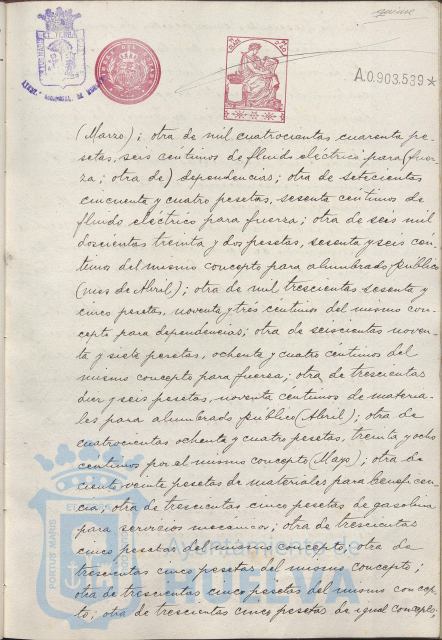 quince
A.0.903.539*
(Marzo); otra de mil cuatrocientas cuarenta pe-
setas, seis céntimos de fluido eléctrico para (fuer-
za; otra de) dependencias; otra de setecientas
cincuenta y cuatro pesetas, sesenta céntimos de
fluido eléctrico para fuerza; otra de seis mil
doscientas treinta y dos pesetas, sesenta y seis cén-
timos del mismo concepto para alumbrado público
(mes de Abril); otra de mil trescientas sesenta y
cinco pesetas, noventa y tres céntimos del mismo con-
cepto para dependencias; otra de seiscientas noven-
ta y siete pesetas, ochenta y cuatro céntimos del
mismo concepto para fuerza; otra de trescientas
diez y seis pesetas, noventa céntimos de materia-
les para alumbrado público (Abril); otra de
cuatrocientas ochenta y cuatro pesetas, treinta y ocho
céntimos por el mismo concepto (Mayo); otra de
ciento veinte pesetas de materiales para benefi cen-
cia; otra de trescientas cinco pesetas de gasolina
para servicios mecánicos; otra de trescientas
cinco pesetas del mismo concepto; otra de
trescientas cinco pesetas del mismo concepto;
otra de trescientas cinco pesetas del mismo concep-
to; otra de trescientas cinco pesetas de igual concepto,
PORTUS MARIS
Ayuntamiento de
HUELVA